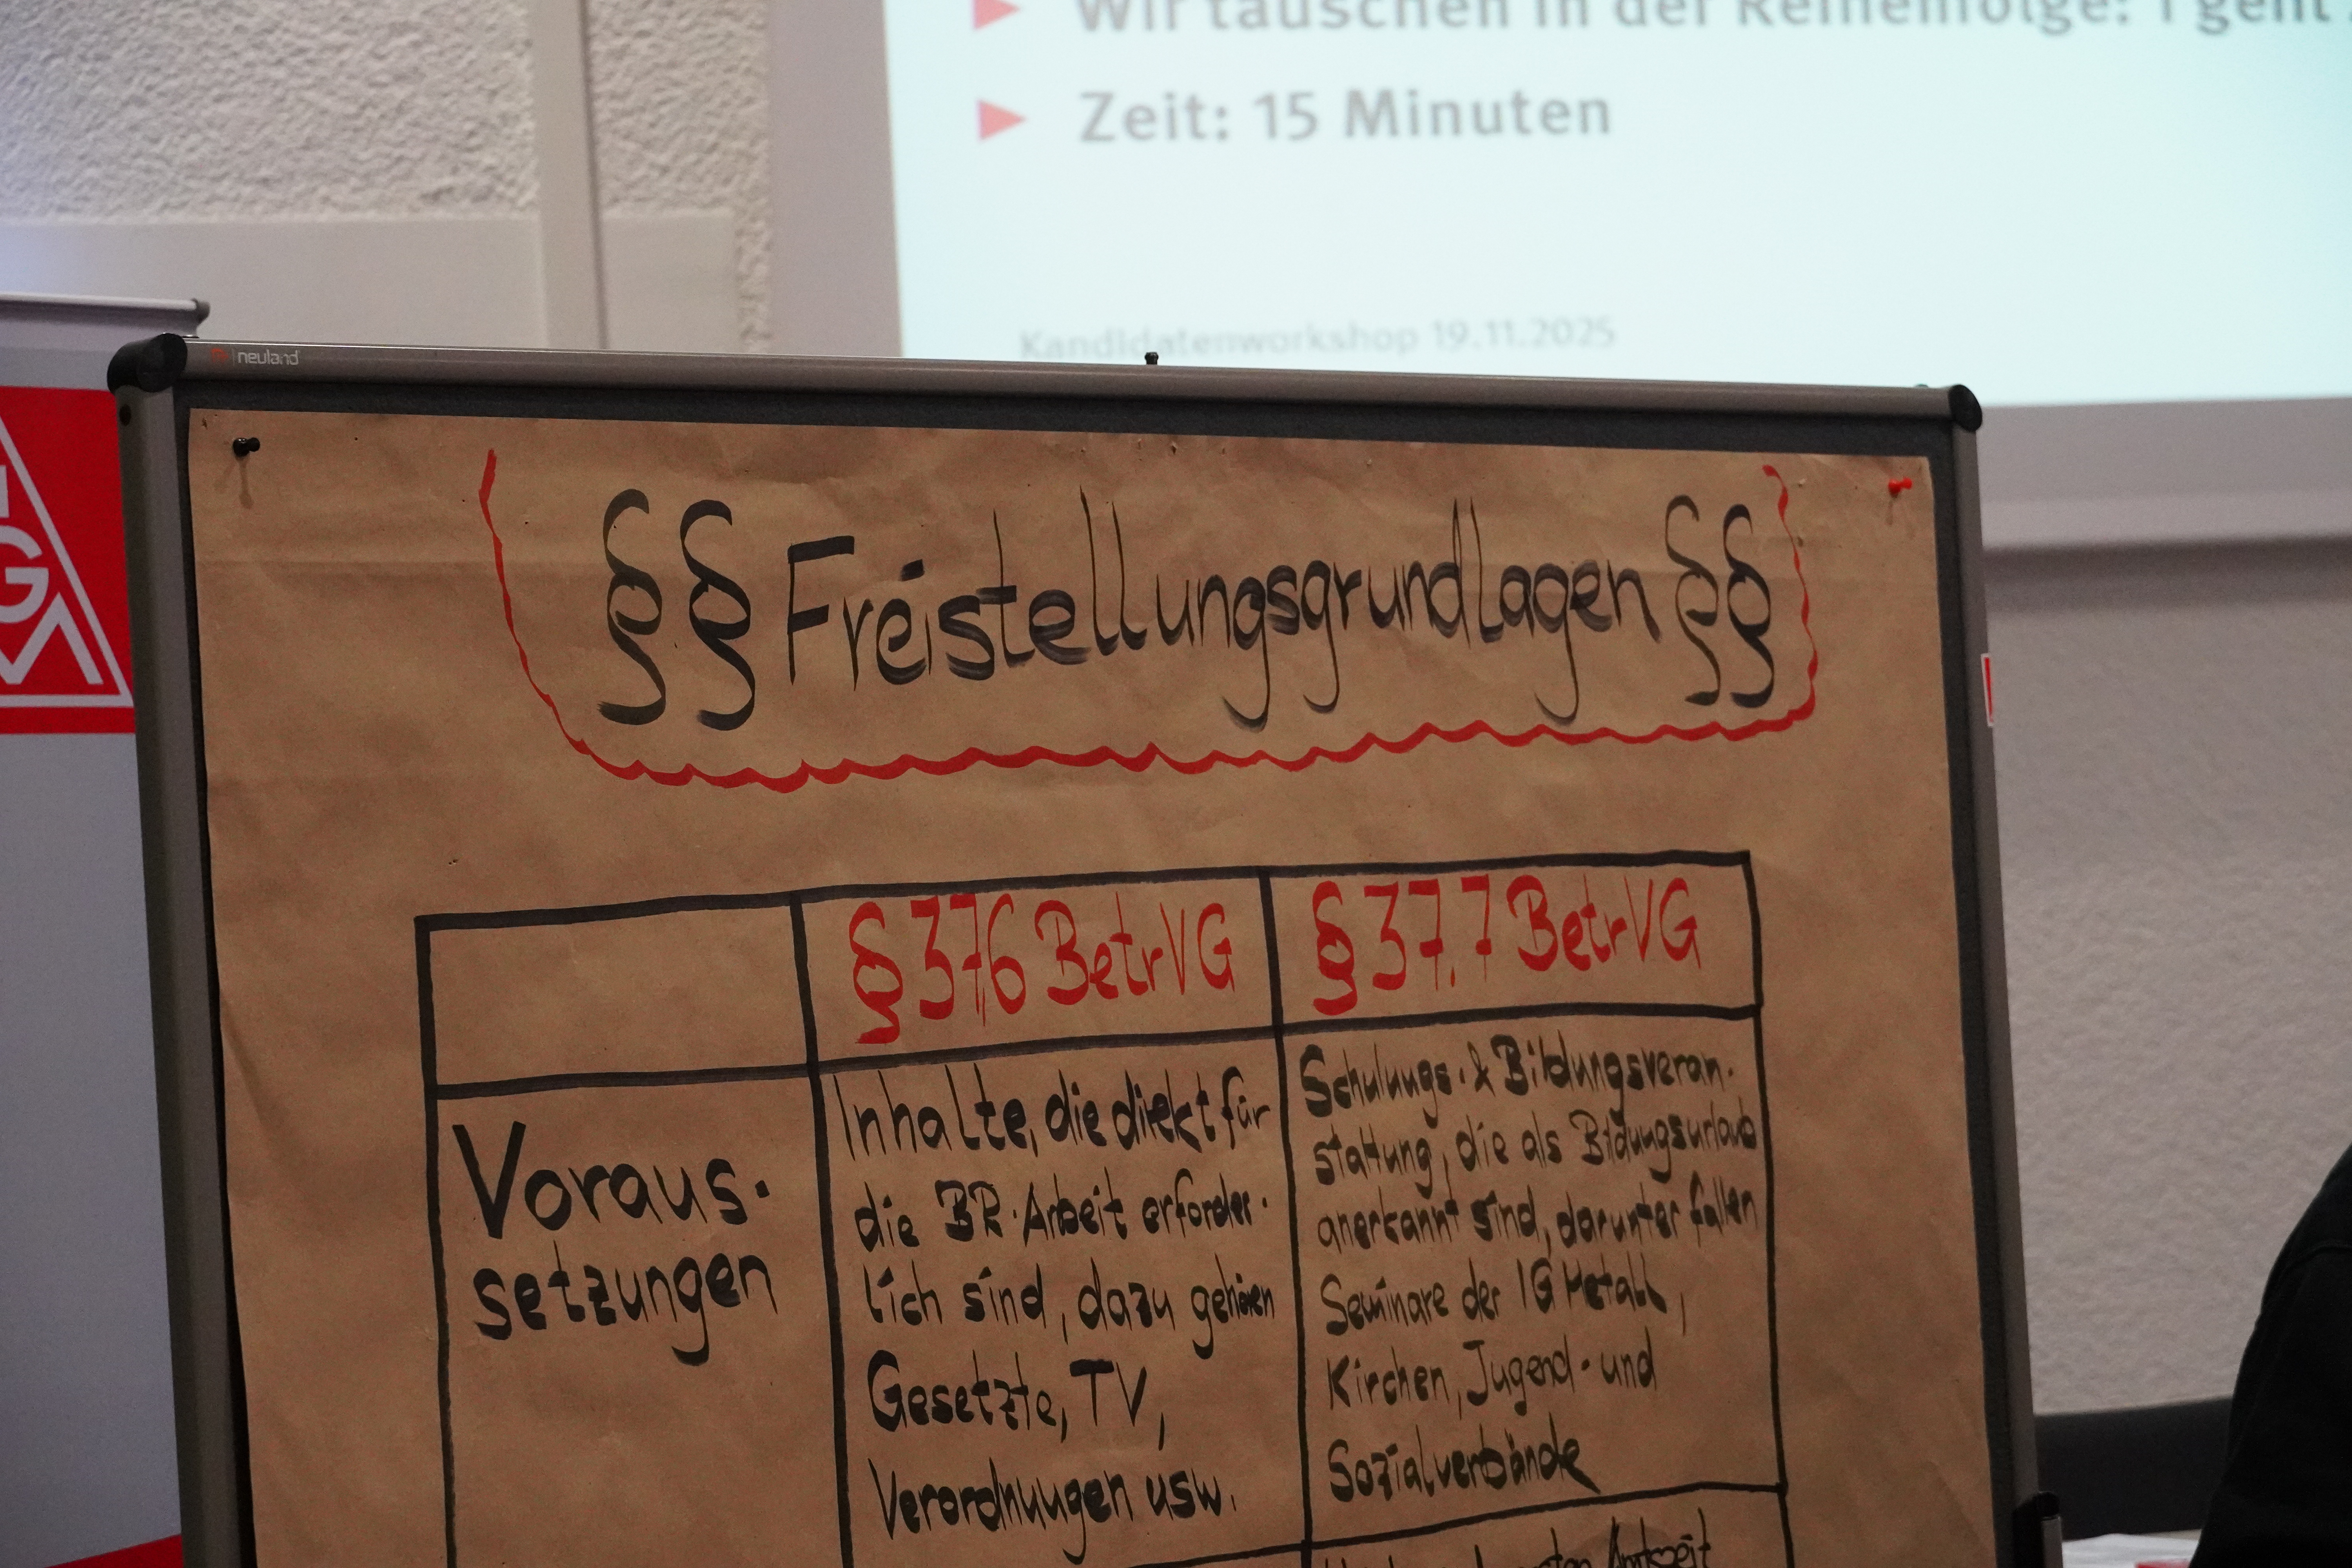 Wir tauschen in der Reihenfolge: 1 geht
Zeit: 15 Minuten
Kandidatenworkshop 19.11.2025
neuland
IG
M
§§ Freistellungsgrundlagen §§
§ 37,6 BetrVG
§ 37.7 BetrVG
Voraus-
setzungen
Inhalte, die direkt für
die BR-Arbeit erforder-
lich sind, dazu gehören
Gesetzte, TV,
Verordnungen usw.
Schulungs- & Bildungsveran-
stattung, die als Bildungsurlaub
anerkannt sind, darunter fallen
Seminare der IG Metall,
Kirchen, Jugend- und
Sozialverbände
Amtszeit